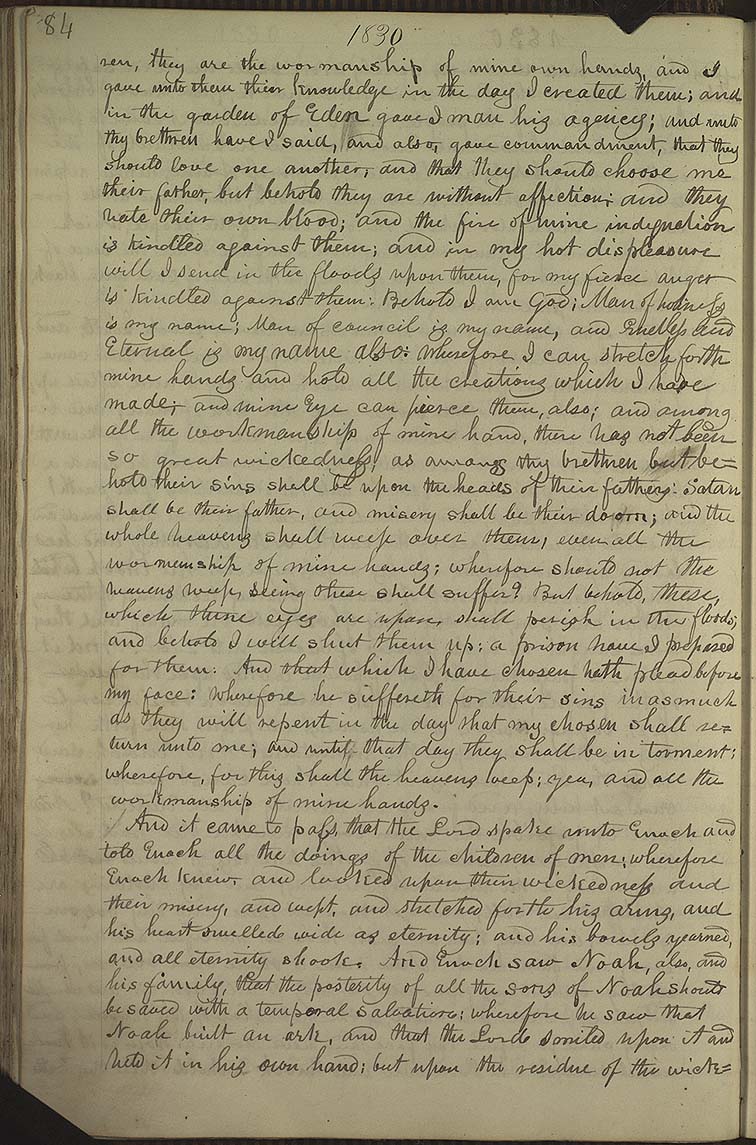 84
1830
ren, they are the wormanship of mine own hands, and I
gave unto them their knowledge in the day I created them; and
in the garden of Eden gave I man his agency; and unto
thy brethren have I said, and also, gave commandment, that they
should love one another, and that they should choose me
their father, but behold they are without affection; and they
hate their own blood; and the fire of mine indignation
is kindled against them; and in my hot displeasure
will I send in the floods upon them, for my fierce anger
is kindled against them: Behold I am God; Man of holiness
is my name; Man of council is my name, and Endless and
Eternal is my name also: wherefore I can stretch forth
mine hands and hold all the creations which I have
made; and mine Eye can pierce them, also; and among
all the workmanship of mine hand, there has not been
so great wickedness, as among thy brethren but be=
hold their sins shall be upon the heads of their fathers: Satan
shall be their father, and misery shall be their doom; and the
whole heavens shall weep over them, even all the
wormenship of mine hands; wherefore should not the
heavens weep, seeing these shall suffer? But behold, these,
which thine eyes are upon, shall perish in the floods;
and behold I will shut them up: a prison have I prepared
for them. And that which I have chosen hath plead before
my face: wherefore he suffereth for their sins inasmuch
as they will repent in the day that my chosen shall re=
turn unto me; and until that day they shall be in torment;
wherefore, for this shall the heavens weep; yea, and all the
workmanship of mine hands.
And it came to pass, that the Lord spake unto Enoch and
told Enoch all the doings of the children of men; wherefore
Enoch knew, and looked upon their wickedness and
their misery, and wept, and stretched forth his arms, and
his heart swelled wide as eternity; and his bowels yearned,
and all eternity shook. And Enoch saw Noah, also, and
his family, that the posterity of all the sons of Noah should
be saved with a temporal salvation; wherefore he saw that
Noah built an ark, and that the Lord smiled upon it and
held it in his own hand; but upon the residue of the wick=